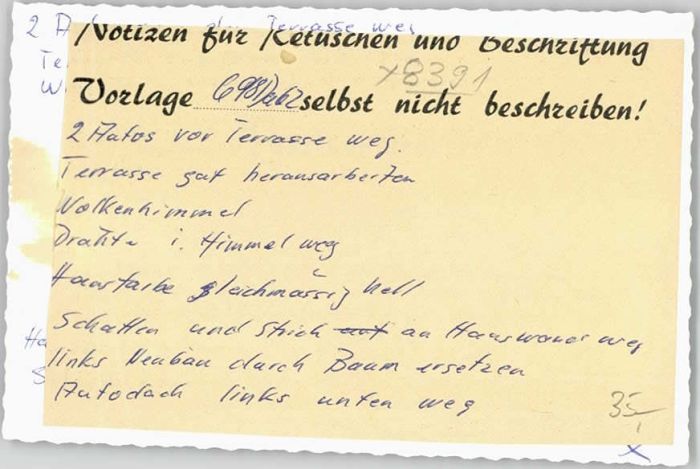 Notizen für Retuschen und Beschriftung
x8391
Vorlage 6981/a62 selbst nicht beschreiben!
2 Autos vor Terrasse weg.
Terrasse gut herausarbeiten
Wolkenhimmel
Drähte i. Himmel weg
Hausfarbe gleichmässig hell
Schatten und Strich auf an Hauswand weg
links Neubau durch Baum ersetzen
Autodach links unten weg
35,-
x